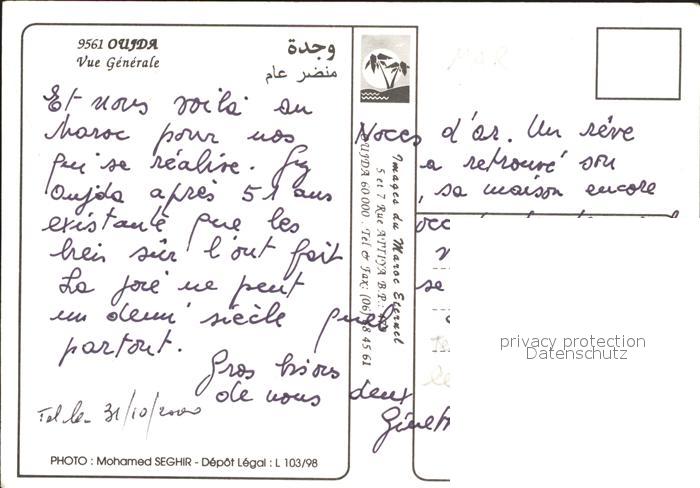 9561 OUJDA
Vue Générale
وجدة
منضر عام
Et nous voilà au
Maroc pour nos Noces d'or. Un rêve
qui se réalise. Guy a retrouvé son
Oujda après 51 ans, sa maison encore
existante que les occ
bien sûr l'ont fait
La joie ne peut se
un demi siècle
partout.
Gros bisous
de nous deux
Ginet
Tel le 31/10/2000
Images du Maroc Eternel
5 et 7 Rue ATTIYA B.P.:
OUJDA 60 000 : Tel & Fax: (06) 68 45 61
PHOTO : Mohamed SEGHIR - Dépôt Légal : L 103/98
privacy protection
Datenschutz